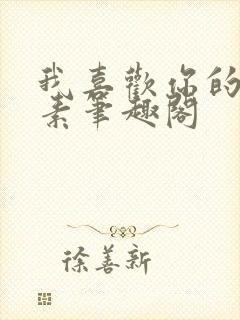 我喜歡你的
素筆趣閣
徐善新